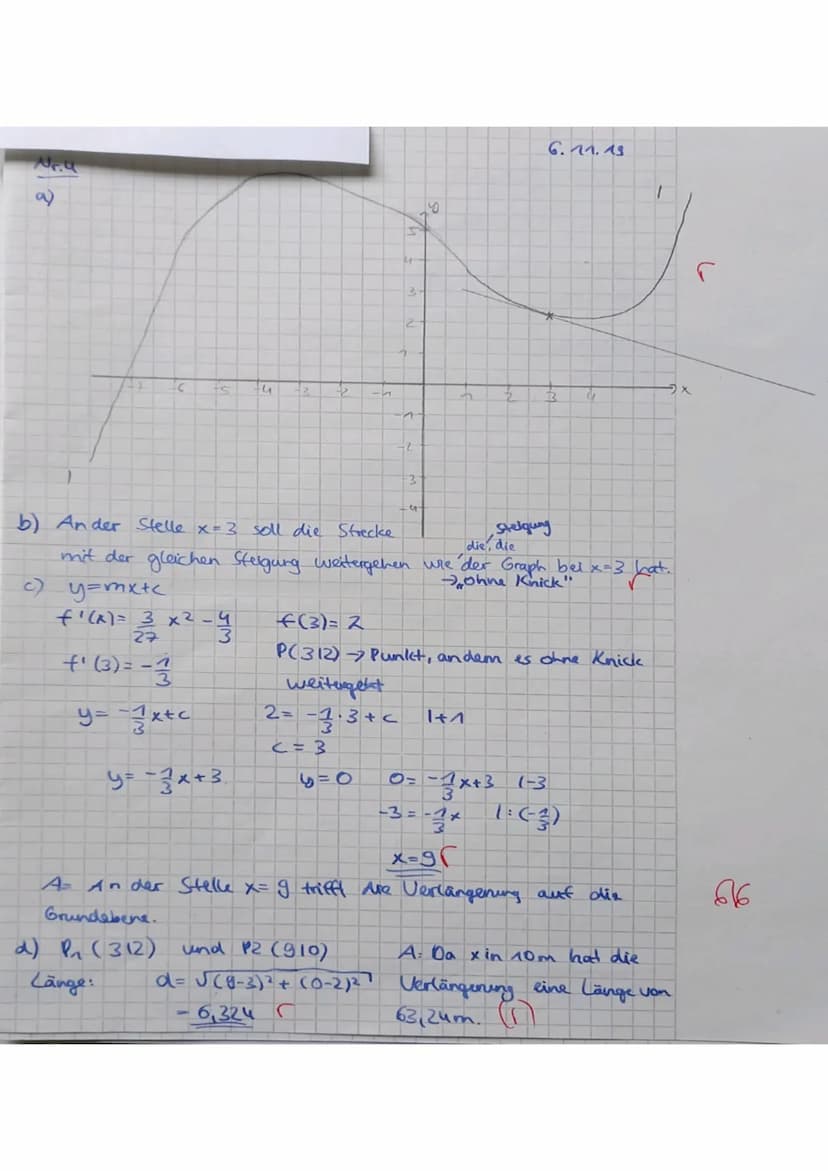 6.11.19
Nr.4
a)
y
5
4
3
2
1
-7 -6 -5 -4 -3 -2 -1 1 2 3 4 x
-1
-2
-3
-4
b) An der Stelle x=3 soll die Strecke
Steigung
die, die
mit der gleichen Steigung weitergehen wie der Graph bei x=3 hat.
→ „ohne Knick"
c) y=mx+c
f'(x)= 3/27 x² - 4/3 f(3)= 2
f'(3)= -1/3 P(3|2) → Punkt, an dem es ohne Knick
weitergeht
y= -1/3x+c 2= -1/3·3+c |+1
c=3
y= -1/3x+3 y=0 0= -1/3x+3 |-3
-3= -1/3x |:(-1/3)
x=9 r
A: An der Stelle x=9 trifft die Verlängerung auf die
Grundebene.
6/6
d) P1(3|2) und P2(9|0) A: Da x in 10m hat die
Länge: d= √(9-3)²+(0-2)² Verlängerung eine Länge von
= 6,324 r 63,24m. (r)